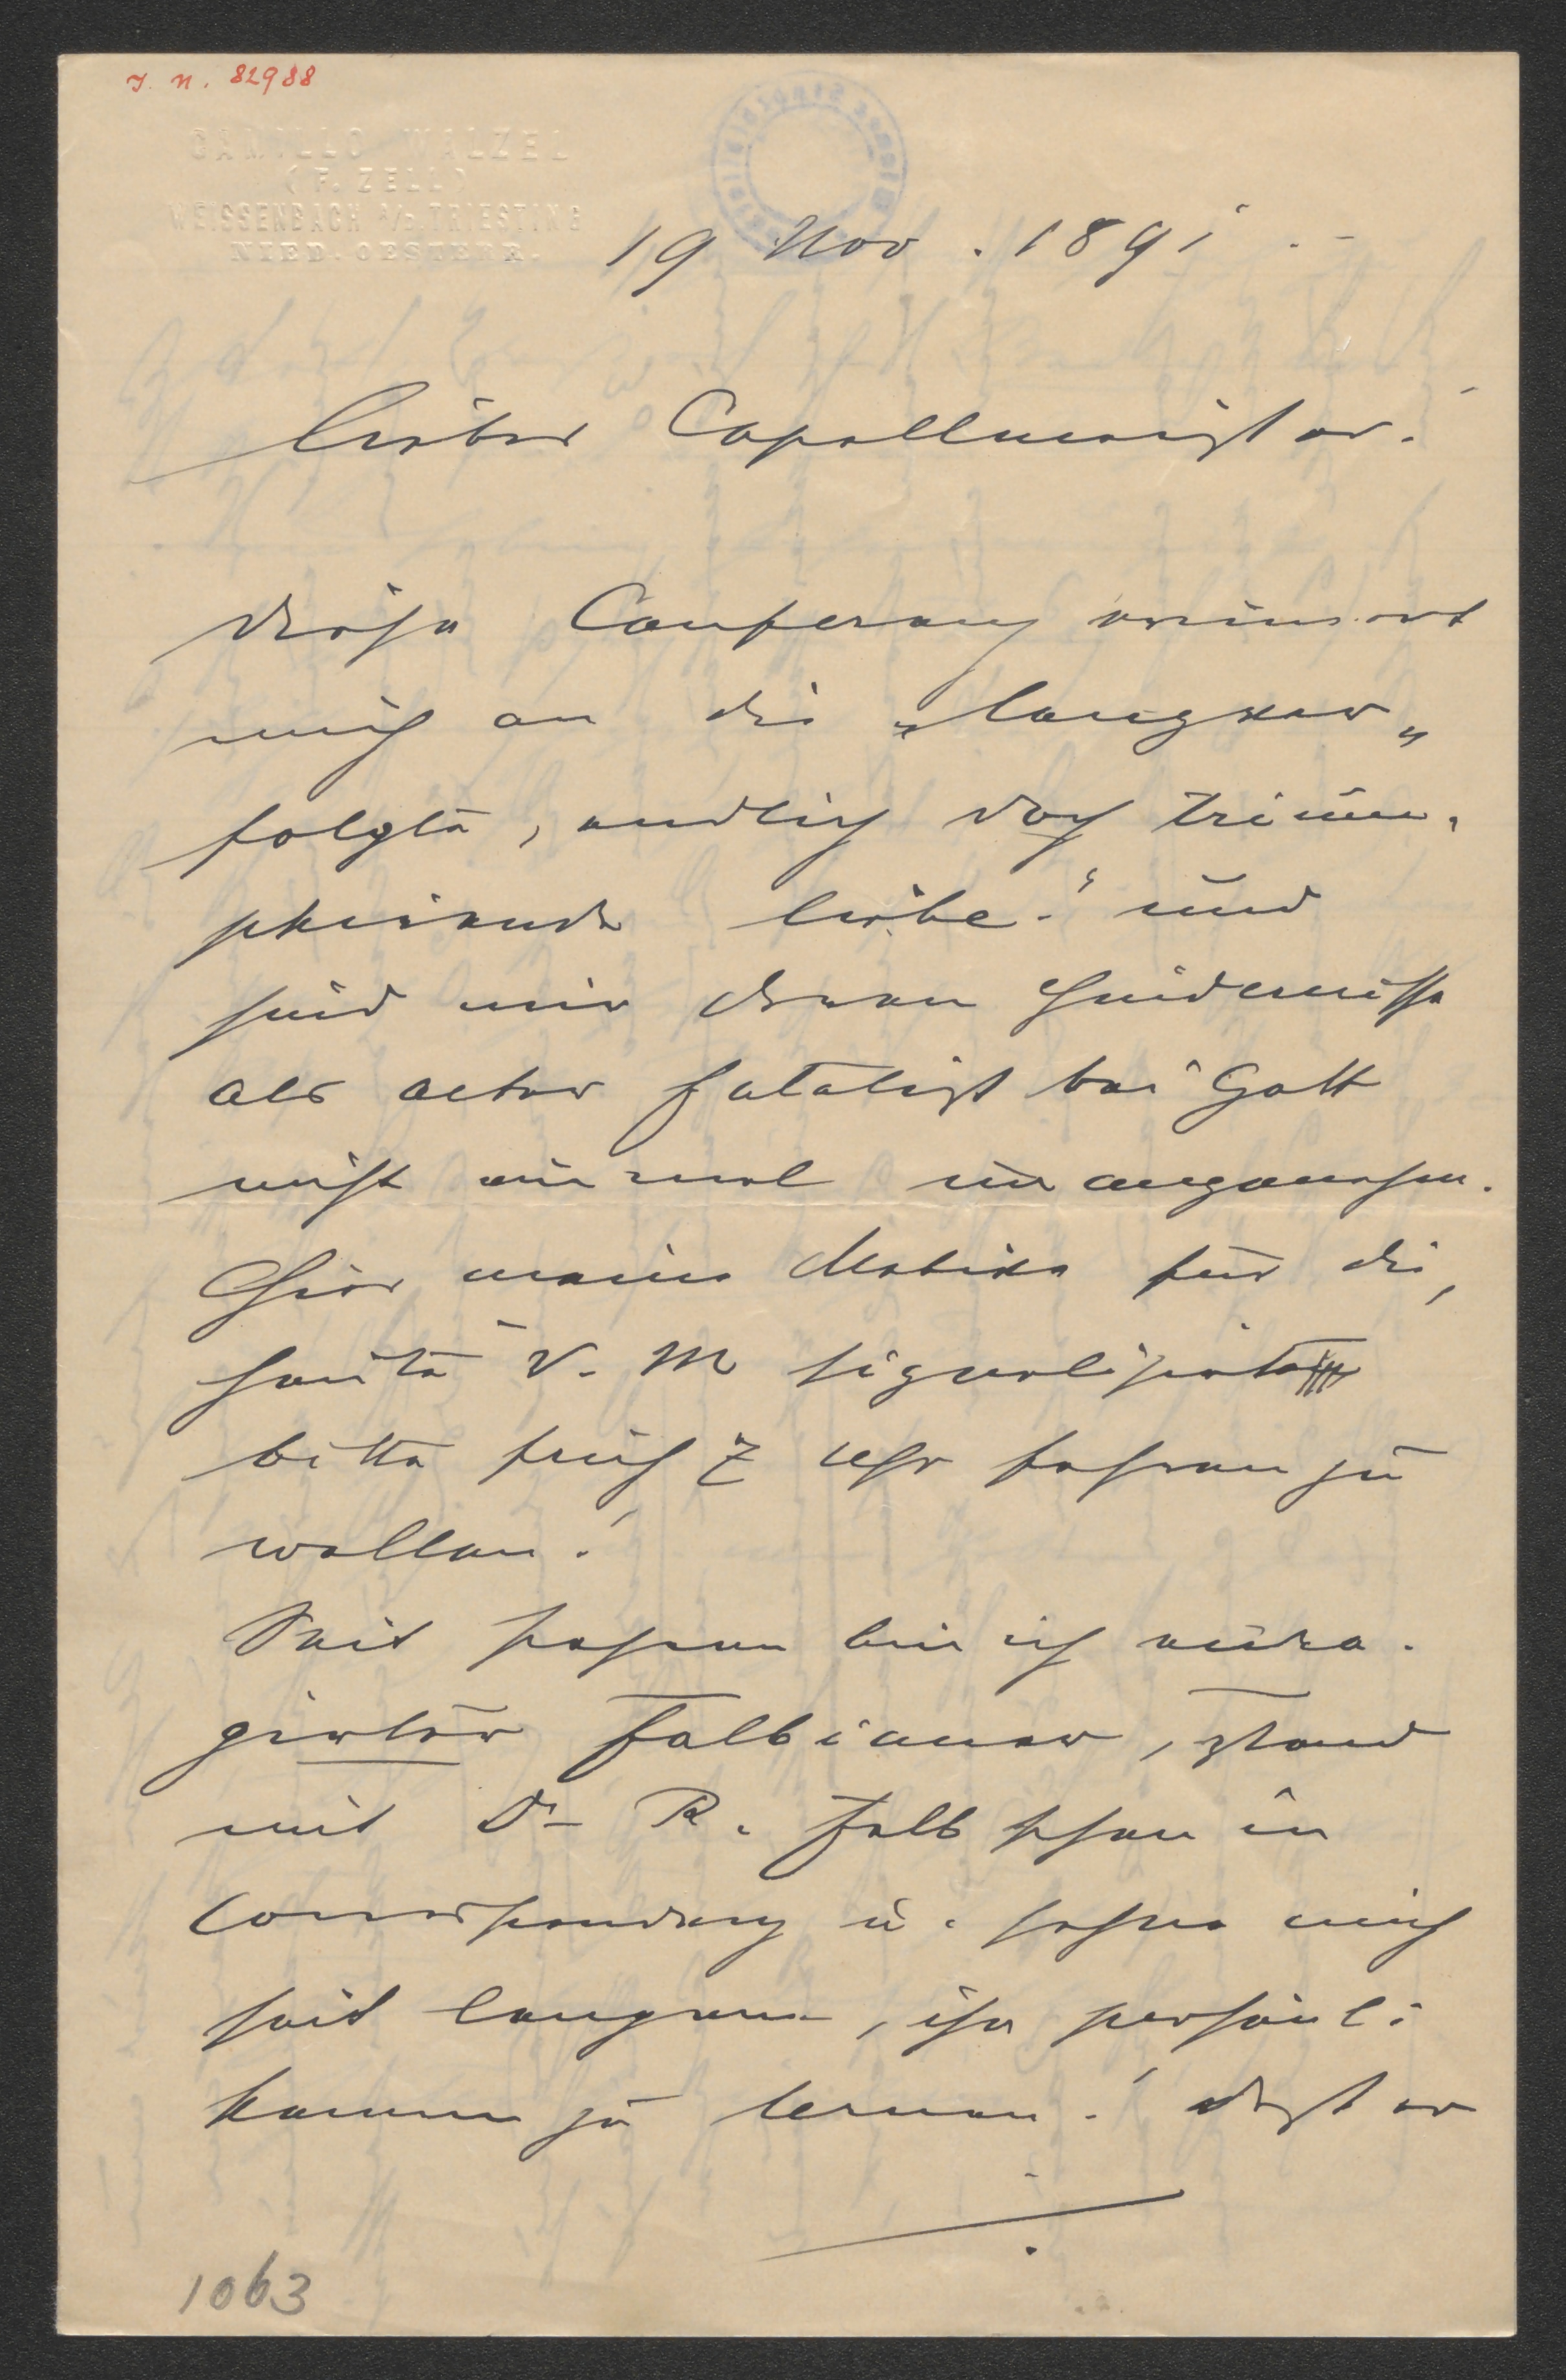 I. N. 82988
CAMILLO WALZEL
(F. ZELL)
WEISSENBACH a/D. TRIESTING
NIED. OESTERR.
19 Nov. 1891.-
Lieber Capellmeister!
Diese Conferenz erinnert
mich an die „lang ver„
folgte, endlich doch trium„
phirende Liebe!" und
sind mir deren Hindernisse
als alter Fatalist bei Gott
nicht einmal unangenehm.
Hier meine Motive für die,
heute V. M signalisirte
bitte früh 7 Uhr fahren zu
wollen!
Seit Jahren bin ich enra„
girter Falbianer, stand
mit Dr R. Falb schon in
Correspondenz u. sehne mich
seit langem, ihn persönl:
kennen zu lernen! Dest er
1063